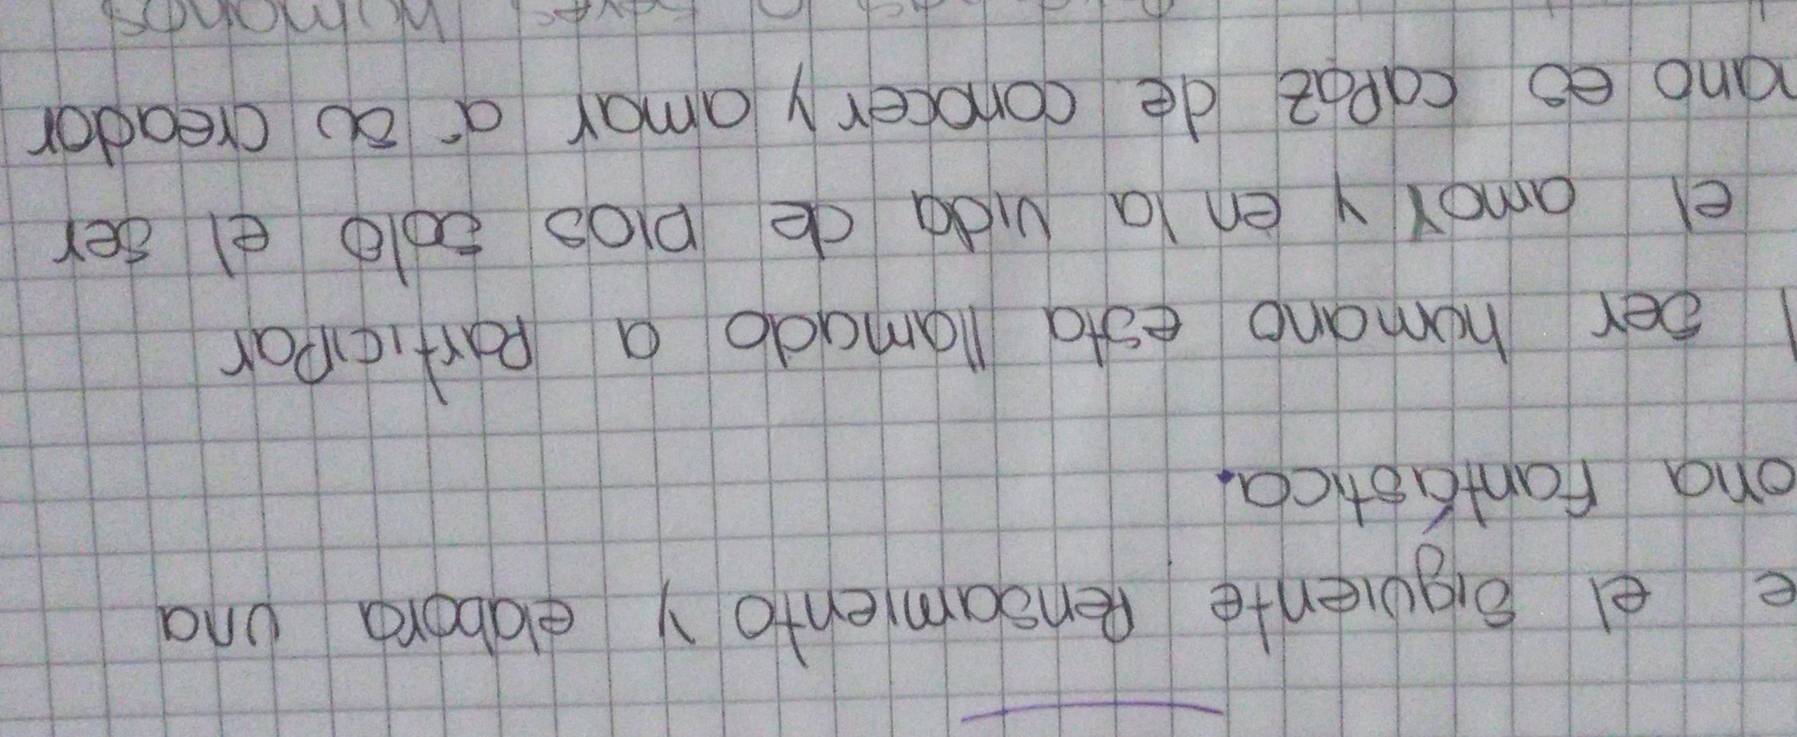 e el siguiente Pensamiento y elabora una
ona Fantástica.
ser humano esta llamado a Participar
el amor y en la vida de Dios solo el ser
mano es capaz de conocer y amar a su creador
seres humanos